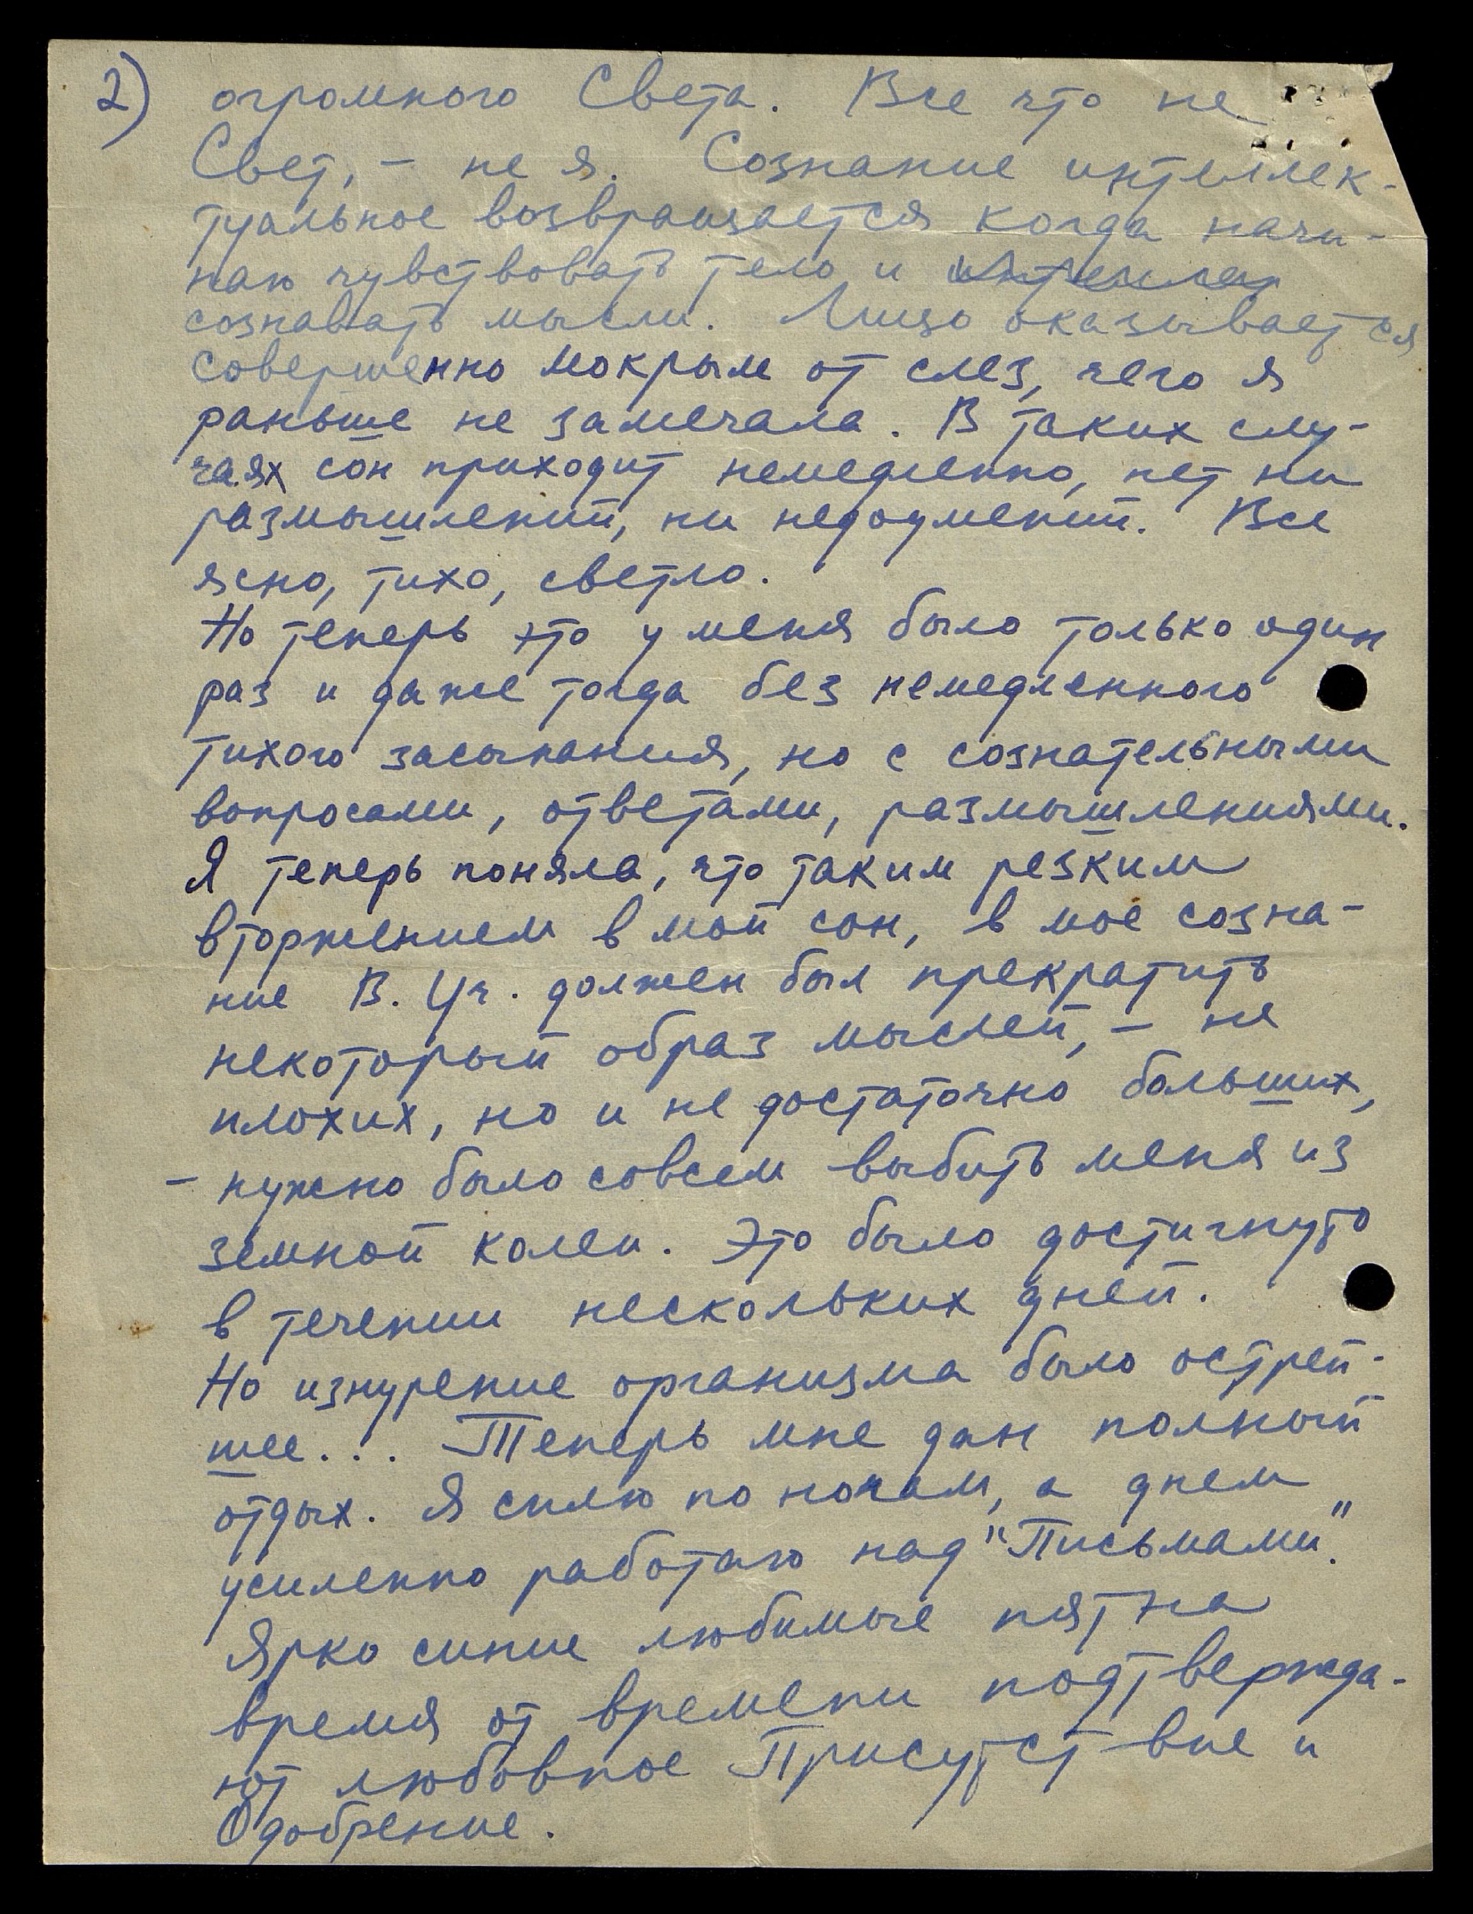 2) огромного Света. Все что не
Свет, – не я. Сознание интеллек-
туальное возвращается когда начи-
наю чувствовать тело и
сознавать мысли. Лицо оказывается
совершенно мокрым от слез, чего я
раньше не замечала. В таких слу-
чаях сон приходит немедленно, нет ни
размышлений, ни недоумений. Все
ясно, тихо, светло.
Но теперь это у меня было только один
раз и даже тогда без немедленного
тихого засыпания, но с сознательными
вопросами, ответами, размышлениями.
Я теперь поняла, что таким резким
вторжением в мой сон, в мое созна-
ние В. Уч. должен был прекратить
некоторый образ мыслей, – не
плохих, но и не достаточно больших,
– нужно было совсем выбить меня из
земной колеи. Это было достигнуто
в течении нескольких дней.
Но изнурение организма было острей-
шее... Теперь мне дан полный
отдых. Я сплю по ночам, а днем
усиленно работаю над "Письмами".
Ярко синие любимые пятна
время от времени подтвержда-
ют любовное Присутствие и
Одобрение.